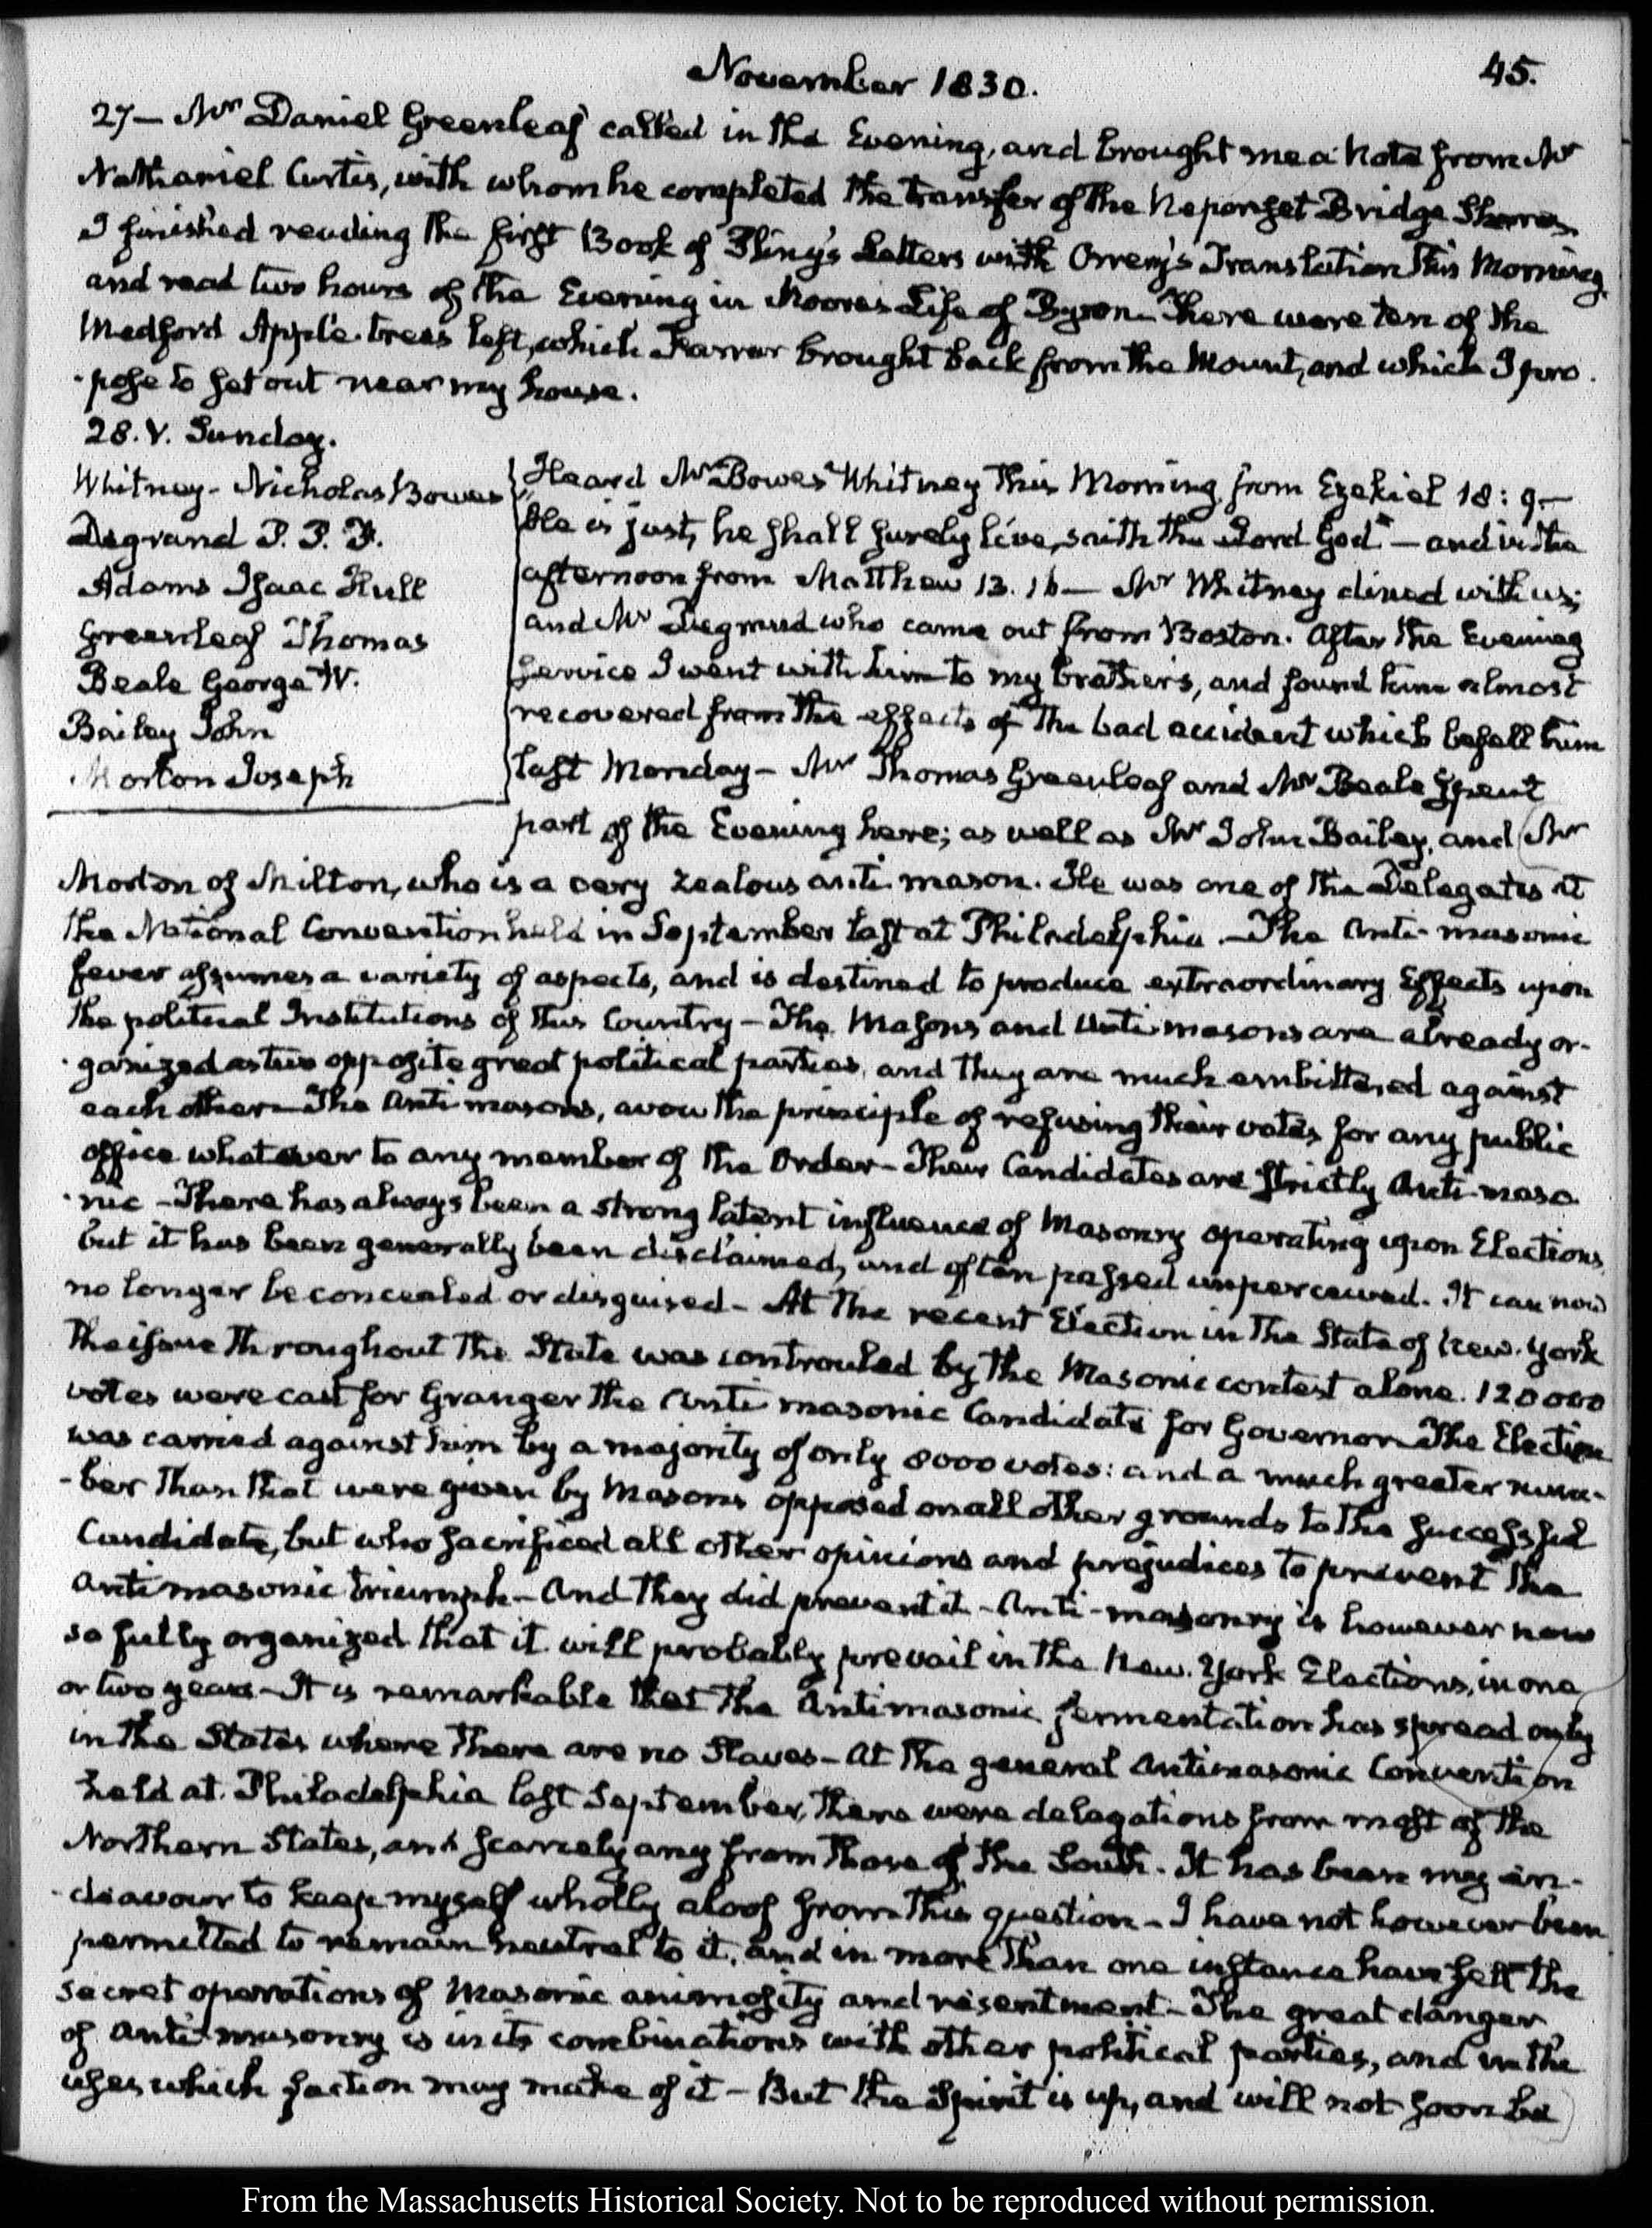 November 1830.
45.
27— Mr Daniel Greenleaf called in the Evening, and brought me a Note from Mr
Nathaniel Curtis, with whom he completed the transfer of the Neponset Bridge Shares.
I finished reading the first Book of Pliny's Letters with Orrery's Translation this Morning,
and read two hours of the Evening in Moore's Life of Byron— There were ten of the
Medford Apple-trees left, which Farrar brought back from the Mount, and which I pro-
-pose to set out near my house.
28. V. Sunday.
Whitney- Nicholas Bowes
Degrand P. P. F.
Adams Isaac Hull
Greenleaf Thomas
Beale George W.
Bailey John
Morton Joseph
Heard Mr Bowes Whitney this Morning from Ezekiel 18: 9—
"He is just, he shall surely live, saith the Lord God" — and in the
afternoon from Matthew 13. 16— Mr Whitney dined with us;
and Mr Degrand who came out from Boston. After the Evening
service I went with him to my brother's, and found him almost
recovered from the effects of the bad accident which befell him
last Monday— Mr Thomas Greenleaf and Mr Beale spent
part of the Evening here; as well as Mr John Bailey, and Mr
Morton of Milton, who is a very zealous anti-mason. He was one of the Delegates at
the National Convention held in September last at Philadelphia.—The Anti-masonic
fever assumes a variety of aspects, and is destined to produce extraordinary Effects upon
the political Institutions of this Country— The Masons and Anti-masons are already or-
-ganized as two opposite great political parties, and they are much embittered against
each other— The Anti-masons, avow the principle of refusing their votes for any public
office whatever to any member of the Order— Their Candidates are strictly Anti-maso-
-nic— There has always been a strong latent influence of Masonry operating upon Elections,
but it has been generally been disclaimed, and often passed unperceived. It can now
no longer be concealed or disguised— At the recent Election in the State of New-York
the issue throughout the State was controuled by the Masonic contest alone. 120000
votes were cast for Granger the Anti masonic Candidate for Governor— The Election
was carried against him by a majority of only 8000 votes: and a much greater num-
-ber than that were given by Masons opposed on all other grounds to the successful
Candidate, but who sacrificed all other opinions and prejudices to prevent the
antimasonic triumph— And they did prevent it— Anti-masonry is however now
so fully organized that it will probably prevail in the New-York Elections, in one
or two years— It is remarkable that the Antimasonic fermentation has spread only
in the States where there are no Slaves— At the general Antimasonic Convention
held at Philadelphia last September, there were delegations from most of the
Northern States, and scarcely any from those of the South. It has been my en-
-deavour to keep myself wholly aloof from this question— I have not however been
permitted to remain neutral to it, and in more than one instance have felt the
secret operations of Masonic animosity and resentment— The great danger
of Anti-masonry is in its combinations with other political parties, and in the
uses which faction may make of it— But the Spirit is up, and will not soon be
From the Massachusetts Historical Society. Not to be reproduced without permission.